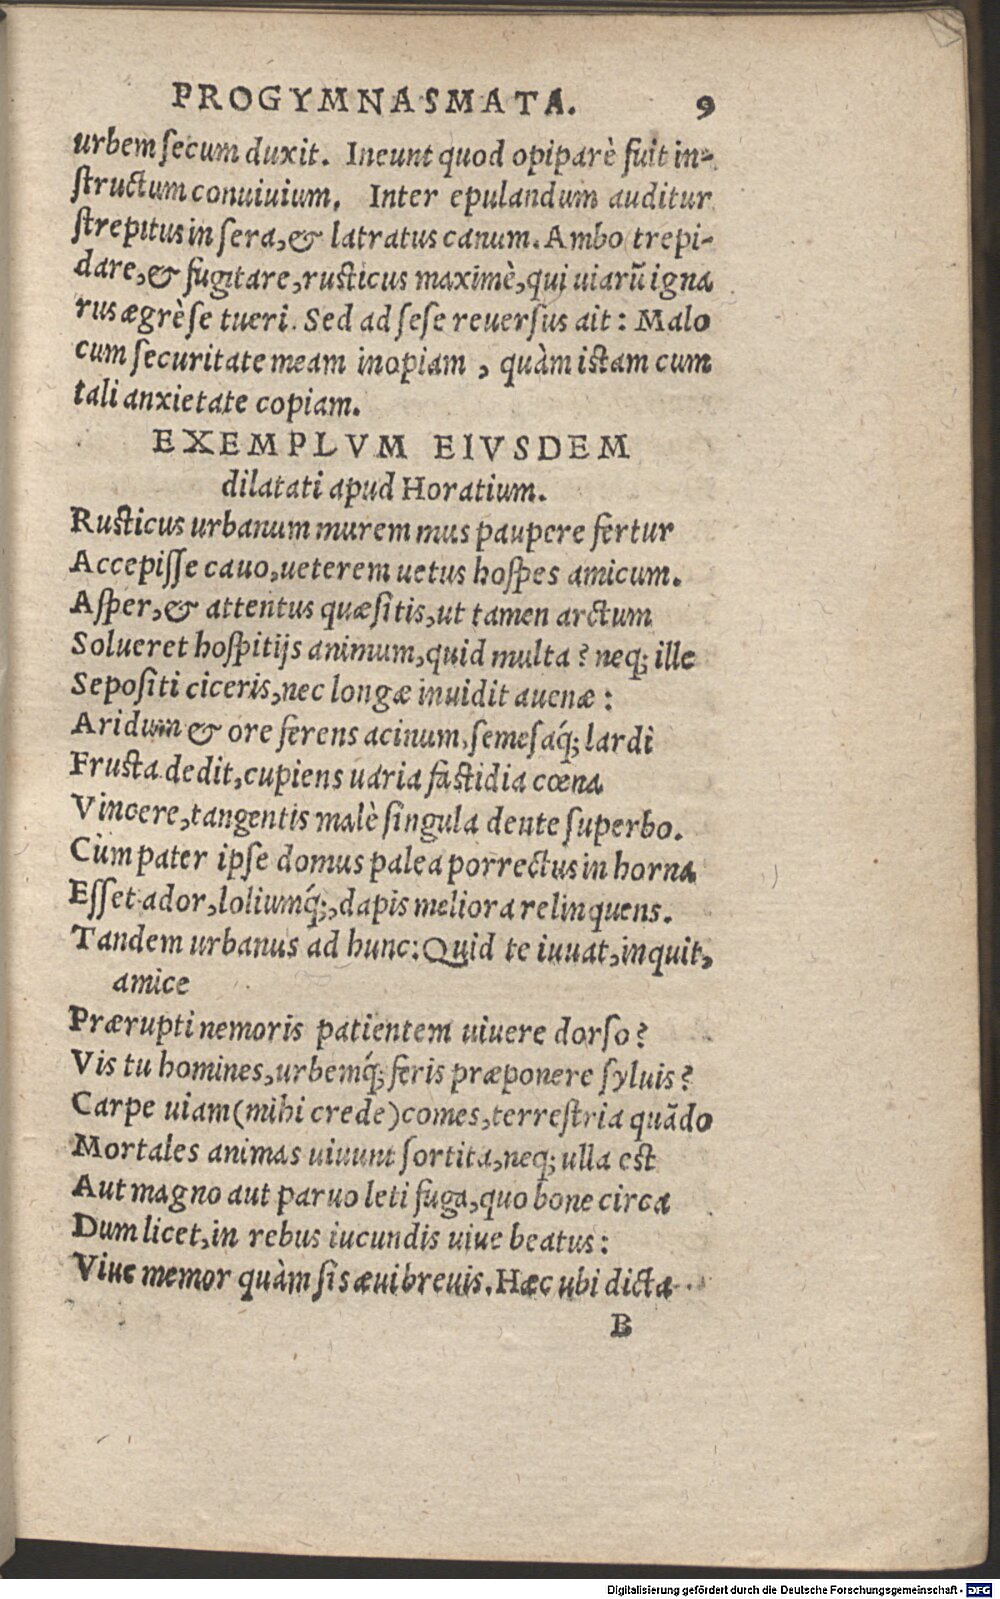 PROGYMNASMATA. 9
urbem secum duxit. Ineunt quod opiparè fuit in-
structum conuiuium. Inter epulandum auditur
strepitus in sera, & latratus canum. Ambo trepi-
dare, & fugitare, rusticus maximè, qui uiarũ igna
rus ægrè se tueri. Sed ad sese reuersus ait: Malo
cum securitate meam inopiam, quàm istam cum
tali anxietate copiam.
EXEMPLVM EIVSDEM
dilatati apud Horatium.
Rusticus urbanum murem mus paupere fertur
Accepisse cauo, ueterem uetus hospes amicum.
Asper, & attentus quæsitis, ut tamen arctum
Solueret hospitijs animum, quid multa? neq; ille
Sepositi ciceris, nec longæ inuidit auenæ:
Aridum & ore ferens acinum, semesáq; lardi
Frusta dedit, cupiens uaria fastidia cœna
Vincere, tangentis malè singula dente superbo.
Cùm pater ipse domus palea porrectus in horna
Esset ador, loliumq́;, dapis meliora relinquens.
Tandem urbanus ad hunc: Quid te iuuat, inquit,
amice
Prærupti nemoris patientem uiuere dorso?
Vis tu homines, urbemq́; feris præponere syluis?
Carpe uiam (mihi crede) comes, terrestria quãdo
Mortales animas uiuunt sortita, neq; ulla est
Aut magno aut paruo leti fuga, quo bone circa
Dum licet, in rebus iucundis uiue beatus:
Viue memor quàm sis æui breuis. Hæc ubi dicta
B
Digitalisierung gefördert durch die Deutsche Forschungsgemeinschaft - DFG